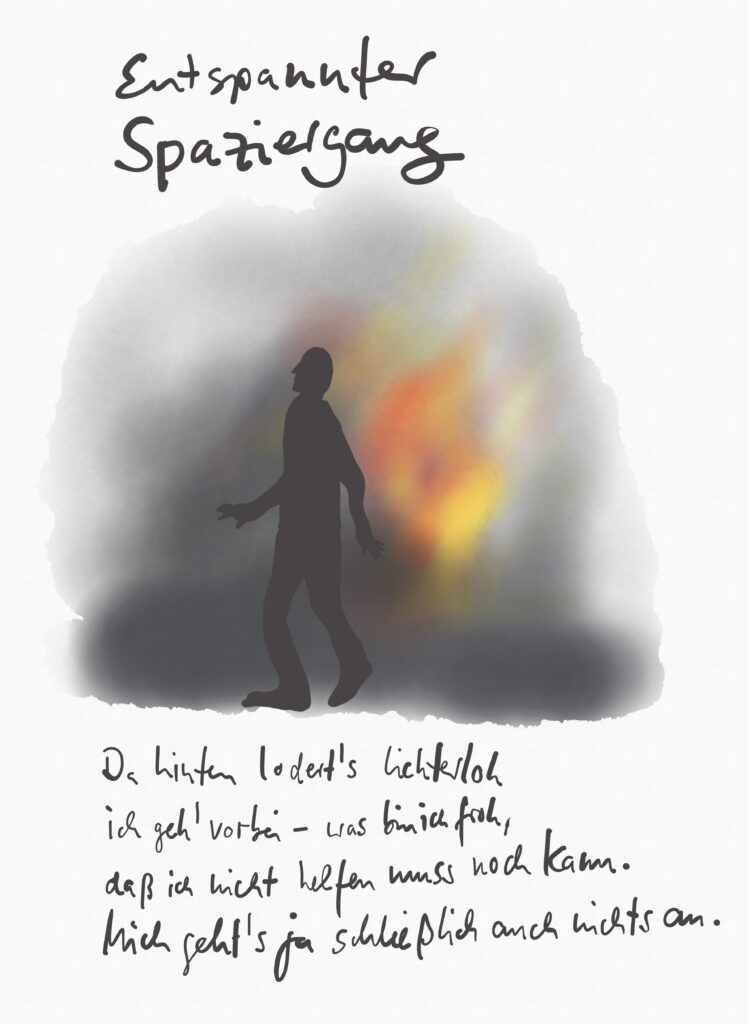 Entspannter
Spaziergang
Da hinten lodert's lichterloh
ich geh' vorbei – was bin ich froh,
daß ich nicht helfen muss noch kann.
Mich geht's ja schließlich auch nichts an.